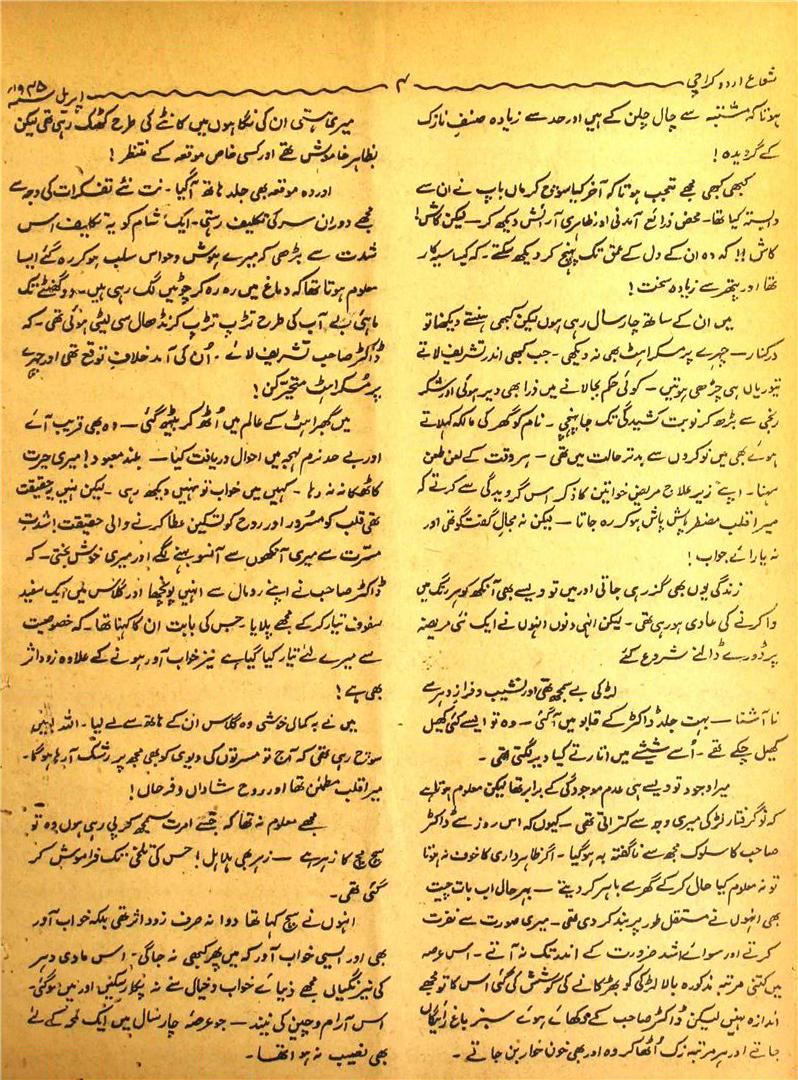 شعاع اردو کراچی
۴
اپریل سنہ ۱۹۳۵ء
ہوتا کہ مشتبہ سے چال چلن کے ہیں اور حد سے زیادہ صنفِ نازک
کے گرویدہ!
کبھی کبھی مجھے تعجب ہوتا کہ آخر کیا سوچ کر ماں باپ نے ان سے
وابستہ کیا تھا۔ محض ذرائع آمدنی اور ظاہری آرائش دیکھ کر — لیکن کاش!
کاش!! کہ وہ ان کے دل کے عمق تک پہنچ کر دیکھ سکتے۔ کہ کیسا سیہ کار
تھا اور پتھر سے زیادہ سخت!
میں ان کے ساتھ چار سال رہی ہوں لیکن کبھی ہنستے دیکھنا تو
درکنار — چہرے پر مسکراہٹ بھی نہ دیکھی۔ جب کبھی اندر تشریف لاتے
تیوریاں ہی چڑھی ہوتیں۔ کوئی حکم بجا لانے میں ذرا بھی دیر ہوئی اور شکر
رنجی سے بڑھ کر نوبت کشیدگی تک جا پہنچی۔ نام کو گھر کی مالکہ کہلاتے
ہوئے بھی میں نوکروں سے بدتر حالت میں تھی۔ ہر وقت کے لعن طعن
سہنا۔ اپنے زیر علاج مریض خواتین کا ذکر اس گرویدگی سے کرتے کہ
میرا قلب مضطر پاش پاش ہو کر رہ جاتا — لیکن نہ مجالِ گفتگو تھی اور
نہ یارائے جواب!
زندگی یوں بھی گذر رہی جاتی اور میں تو ویسے بھی آنکھ کو ہر رنگ میں
وا کرنے کی عادی ہو رہی تھی۔ لیکن انہی دنوں انہوں نے ایک نئی مریضہ
پر ڈورے ڈالنے شروع کئے
لڑکی بے سمجھ تھی اور نشیب و فراز دہر سے
نا آشنا — بہت جلد ڈاکٹر کے قابو میں آ گئی۔ وہ تو ایسے کئی کھیل
کھیل چکے تھے۔ اُسے شیشے میں اتارتے کیا دیر لگتی تھی۔
میرا وجود تو ویسے ہی عدم موجودگی کے برابر تھا لیکن معلوم ہوتا ہے
کہ نو گرفتار لڑکی میری وجہ سے کتراتی تھی۔ کیوں کہ اس روز سے ڈاکٹر
صاحب کا سلوک مجھ سے ناگفتہ بہ ہو گیا۔ اگر ظاہرداری کا خوف نہ ہوتا
تو نہ معلوم کیا حال کر کے گھر سے باہر کر دیتے — بہر حال اب بات چیت
بھی انہوں نے مستقل طور پر بند کر دی تھی۔ میری صورت سے نفرت
کرتے اور سوائے اشد ضرورت کے اندر تک نہ آتے۔ اس عرصہ
میں کتنی مرتبہ مذکورہ بالا لڑکی کو بھڑکانے کی کوشش کی گئی اس کا تو مجھے
اندازہ نہیں لیکن ڈاکٹر صاحب کے دکھائے ہوئے سبز باغ رائیگاں
جاتے اور ہر مرتبہ زک اُٹھا کر وہ اور بھی خون خوار بن جاتے۔
میری ہستی ان کی نگاہوں میں کانٹے کی طرح کھٹک رہی تھی لیکن
بظاہر خاموش تھے اور کسی خاص موقعہ کے منتظر!
اور وہ موقعہ بھی جلد ہاتھ آ گیا۔ نت نئے تفکرات کی وجہ سے
مجھے دوران سر کی تکلیف رہتی۔ ایک شام کو یہ تکلیف اس
شدت سے بڑھی کہ میرے ہوش و حواس سلب ہو کر رہ گئے ایسا
معلوم ہوتا تھا کہ دماغ میں رہ رہ کر چوٹیں لگ رہی ہیں۔ دو گھنٹے تک
ماہئی بے آب کی طرح تڑپ تڑپ کر نڈھال سی لیٹی ہوئی تھی۔ کہ
ڈاکٹر صاحب تشریف لائے۔ اُن کی آمد خلافِ توقع تھی اور چہرے
پر مُسکراہٹ متحیّر کن!
میں گھبراہٹ کے عالم میں اُٹھ کر بیٹھ گئی — وہ بھی قریب آئے
اور بے حد نرم لہجہ میں احوال دریافت کیا — بلند معبود! میری حیرت
کا ٹھکانہ نہ رہا۔ کہیں میں خواب تو نہیں دیکھ رہی۔ لیکن نہیں یہ حقیقت
تھی قلب کو مسرور اور روح کو تسکین عطا کرنے والی حقیقت! شدتِ
مسرت سے میری آنکھوں سے آنسو بہنے لگے اور میری خوش بختی۔ کہ
ڈاکٹر صاحب نے اپنے رومال سے انہیں پونچھا اور گلاس میں ایک سفید
سفوف تیار کر کے مجھے پلایا۔ جس کی بابت ان کا کہنا تھا۔ کہ خصوصیت
سے میرے لئے تیار کیا گیا ہے نیز خواب آور ہونے کے علاوہ زود اثر
بھی ہے!
میں نے بہ کمال خوشی وہ گلاس ان کے ہاتھ سے لے لیا۔ اللہ
سوچ رہی تھی کہ آج تو مسرتوں کی دیوی کو بھی مجھ پر رشک آ رہا ہوگا۔
میرا قلب مطمئن تھا اور روح شاداں و فرحاں!
مجھے معلوم نہ تھا کہ جسے امرت سمجھ کر پی رہی ہوں وہ تو
سچ مچ کا زہر ہے — زہر بھی ہلاہل! جس کی تلخی تک فراموش کر
گئی تھی۔
انہوں نے سچ کہا تھا دوا نہ صرف زود اثر تھی بلکہ خواب آور
بھی اور ایسی خواب آور کہ میں پھر کبھی نہ جاگی۔ اس مادی دہر
کی نیرنگیاں مجھے دنیائے خواب و خیال سے نہ پکار سکیں اور میں سو گئی۔
اس آرام و چین کی نیند — جو عرصہ چار سال میں ایک لمحہ کے لئے
بھی نصیب نہ ہوا تھا۔